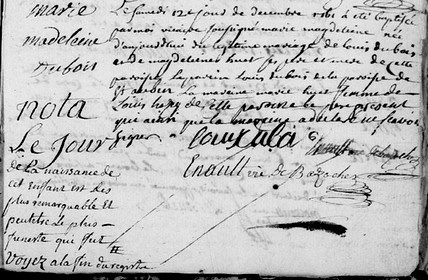 marie
madeleine
dubois
Le Samedi 12e jour de decembre a été baptisée
par moi vicaire soussigné marie magdeleine née
d'aujourd'hui du legitime mariage de louis dubois
et de magdeleine huet ses pere et mere de cette
paroisse le parein Louis dubois de la paroisse de
la mareine marie femme de
Louis de cette paroisse le pere present
qui ainsi que la mareine a declaré ne sçavoir
signer
nota
Le Jour
de la naissance de
cet enfant est des
plus remarquable et
peutetre le plus
funeste qui fut
Voyez a la fin du registre
Enault vic De Bazoches